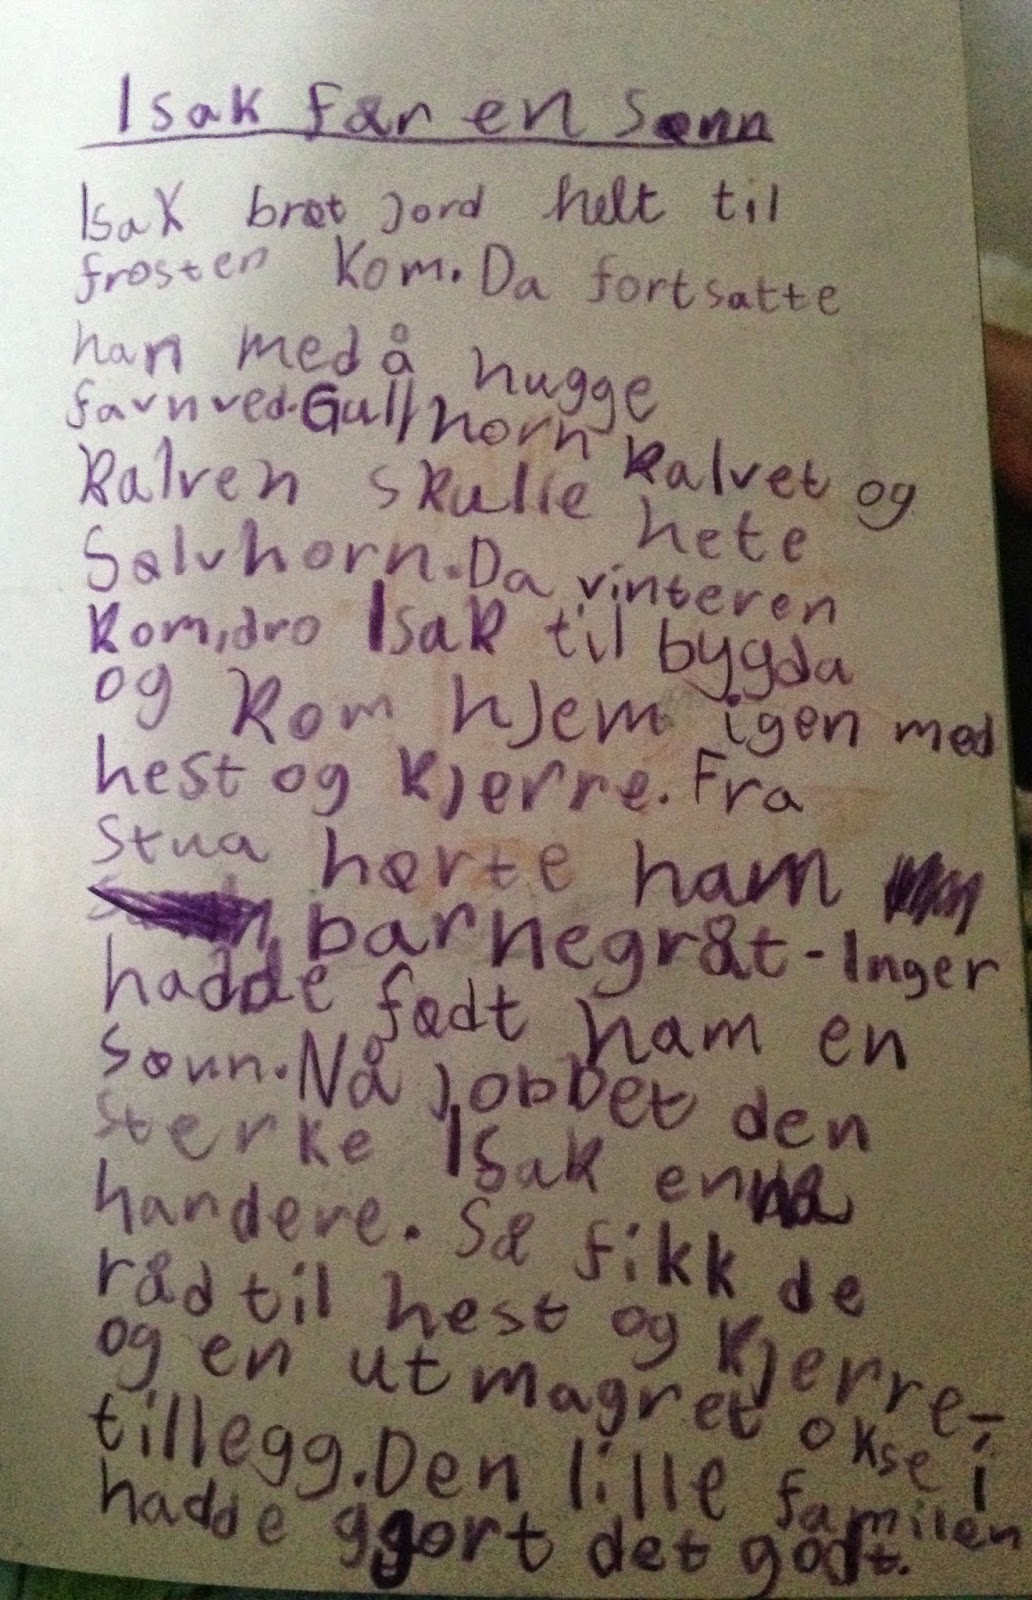 Isak får en sønn
Isak brøt jord helt til
frosten kom. Da fortsatte
han med å hugge
favnved. Gullhorn kalvet og
kalven skulle hete
Sølvhorn. Da vinteren
kom, dro Isak til bygda
og kom hjem igen med
hest og kjerre. Fra
stua hørte ham
barnegråt - Inger
hadde født ham en
sønn. Nå jobbet den
sterke Isak ennå
hardere. Så fikk de
råd til hest og kjerre -
og en utmagret okse i
tillegg. Den lille familien
hadde gjort det godt.